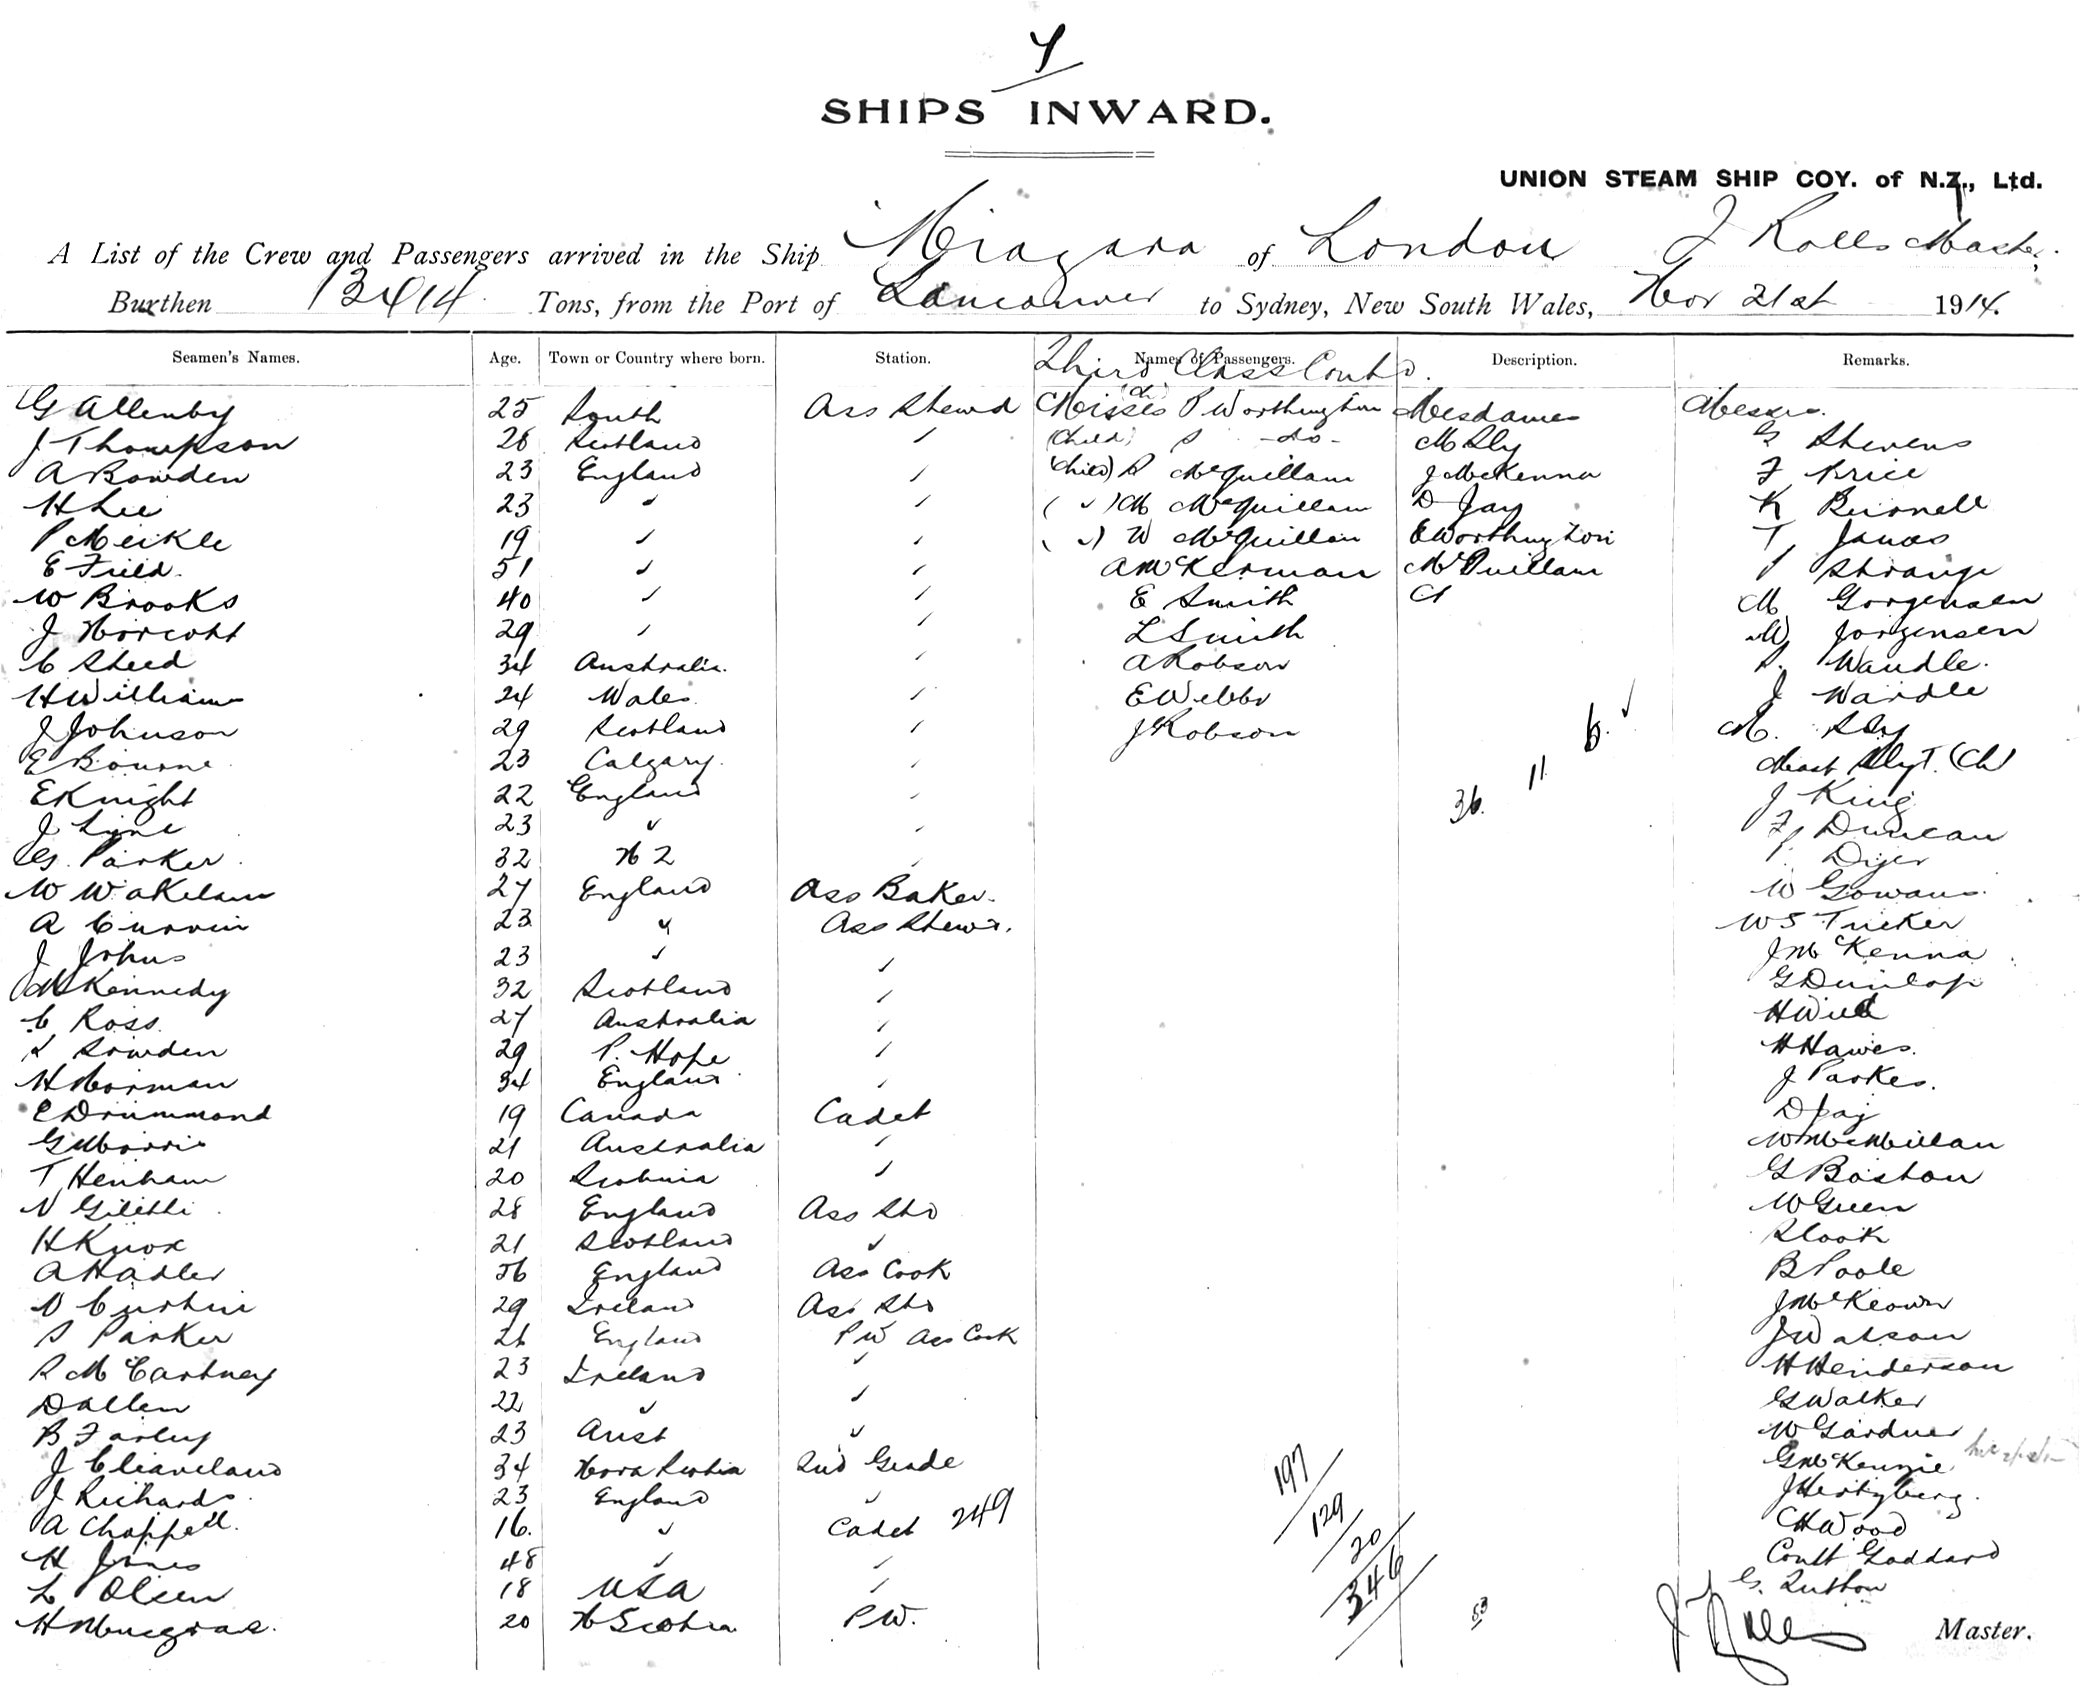 7
SHIPS INWARD.
UNION STEAM SHIP COY. of N.Z., Ltd.
A List of the Crew and Passengers arrived in the Ship Niagara of London J Rolls Master.
Burthen 13414 Tons, from the Port of Vancouver to Sydney, New South Wales, Nov 21st 1914.
Seamen's Names. Age. Town or Country where born. Station. Names of Passengers. Description. Remarks.
Third Class Contd.
G Allenby 25 South Ass Stewd Misses (Ch) P Worthington Mesdames Messrs.
J Thompson 28 Scotland " (Child) S -do- M Sly G Stevens
A Bowden 23 England " (Child) R McQuillam J McKenna F Price
H Lee 23 " " ( " ) M McQuillam D Jay K Burnell
P Meikle 19 " " ( " ) W McQuillan E Worthington T Janos
E Field. 51 " " A McKerman McQuillam S Strange
W Brooks 40 " " E Smith M Gorgensen
J Norcott 29 " " L Smith M Jorgensen
C Steed 34 Australia. " A Robson S. Wandle.
H Williams 24 Wales. " E Webb J Wardle
J Johnson 29 Scotland " J Robson 6. M. Sly
E Bourne 23 Calgary. " 11. Mast Sly T. (Ch)
E Knight 22 England " 36. J King
J Lyne 23 " " F Duncan
G. Parker 32 N Z " Dyer
W Wakelam 27 England Ass Baker. W Gowans.
A Currin 23 " Ass Stewd. W S Tucker
J Johns 23 " " J McKenna
M Kennedy 32 Scotland " G Dunlop
C Ross 27 Australia " H Wild
S Sowden 29 P. Hope " H Hawes.
H Norman 34 England " J Parkes.
E Drummond 19 Canada Cadet D Jay
G Morris 21 Australia " W McMillan
T Henham 20 " G Boston
N Giletti 28 England Ass Std W Green
H Knox 21 Scotland " S Cook
A Hadler 36 England Ass Cook B Poole
D Curtin 29 Ireland Ass Std J McKeown
S Parker 26 England P W Ass Cook J Watson
S McCartney 23 Ireland " H Henderson
D Allen 22 " " G Walker
B Farley 23 Aust " W Gardner
J Cleaveland 34 Nova Scotia 2nd Grade 197 G McKenzie
J Richards. 23 England " 129 J Hertzberg.
A Chappell. 16. " Cadet 249 20 C H Wood
H Jones 48 " " 346 Coult Goddard
L Olsen 18 USA " G. Sutton
H Musgrave. 20 N Scotia P W. 53 J Rolls Master.